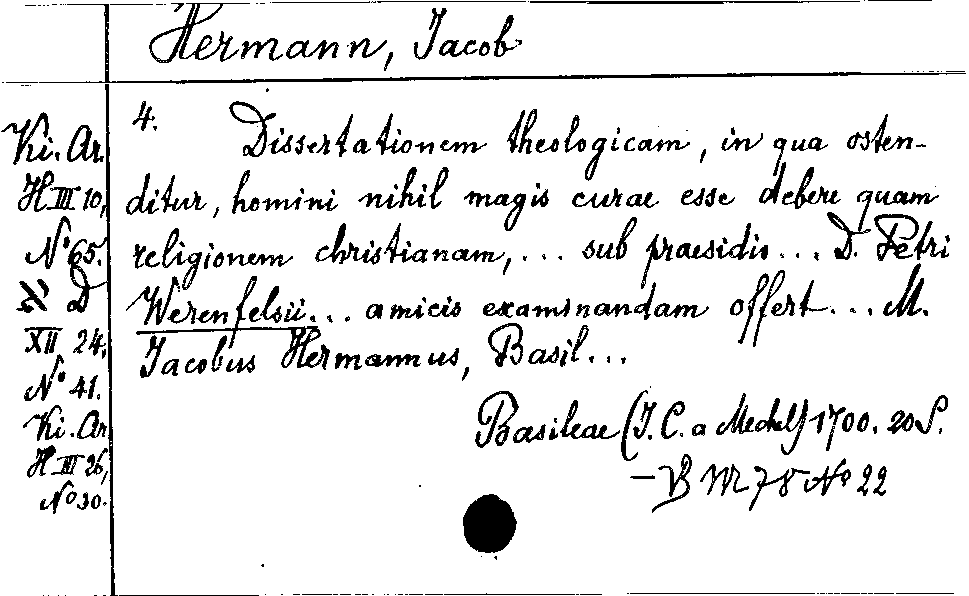 Hermann, Jacob
4.
Dissertationem theologicam, in qua osten-
ditur, homini nihil magis curae esse debere quam
religionem christianam, ... sub praesidio ... D. Petri
Werenfelsii... amicis examinandam offert ... M.
Jacobus Hermannus, Basil...
Basileae (J. C. a Mechel) 1700. 20 S.
– V M 78 No 22
Ki. Ar.
H III 10,
No 65.
D
XII 24,
No 41.
Ki. Ar.
H III 26,
No 30.